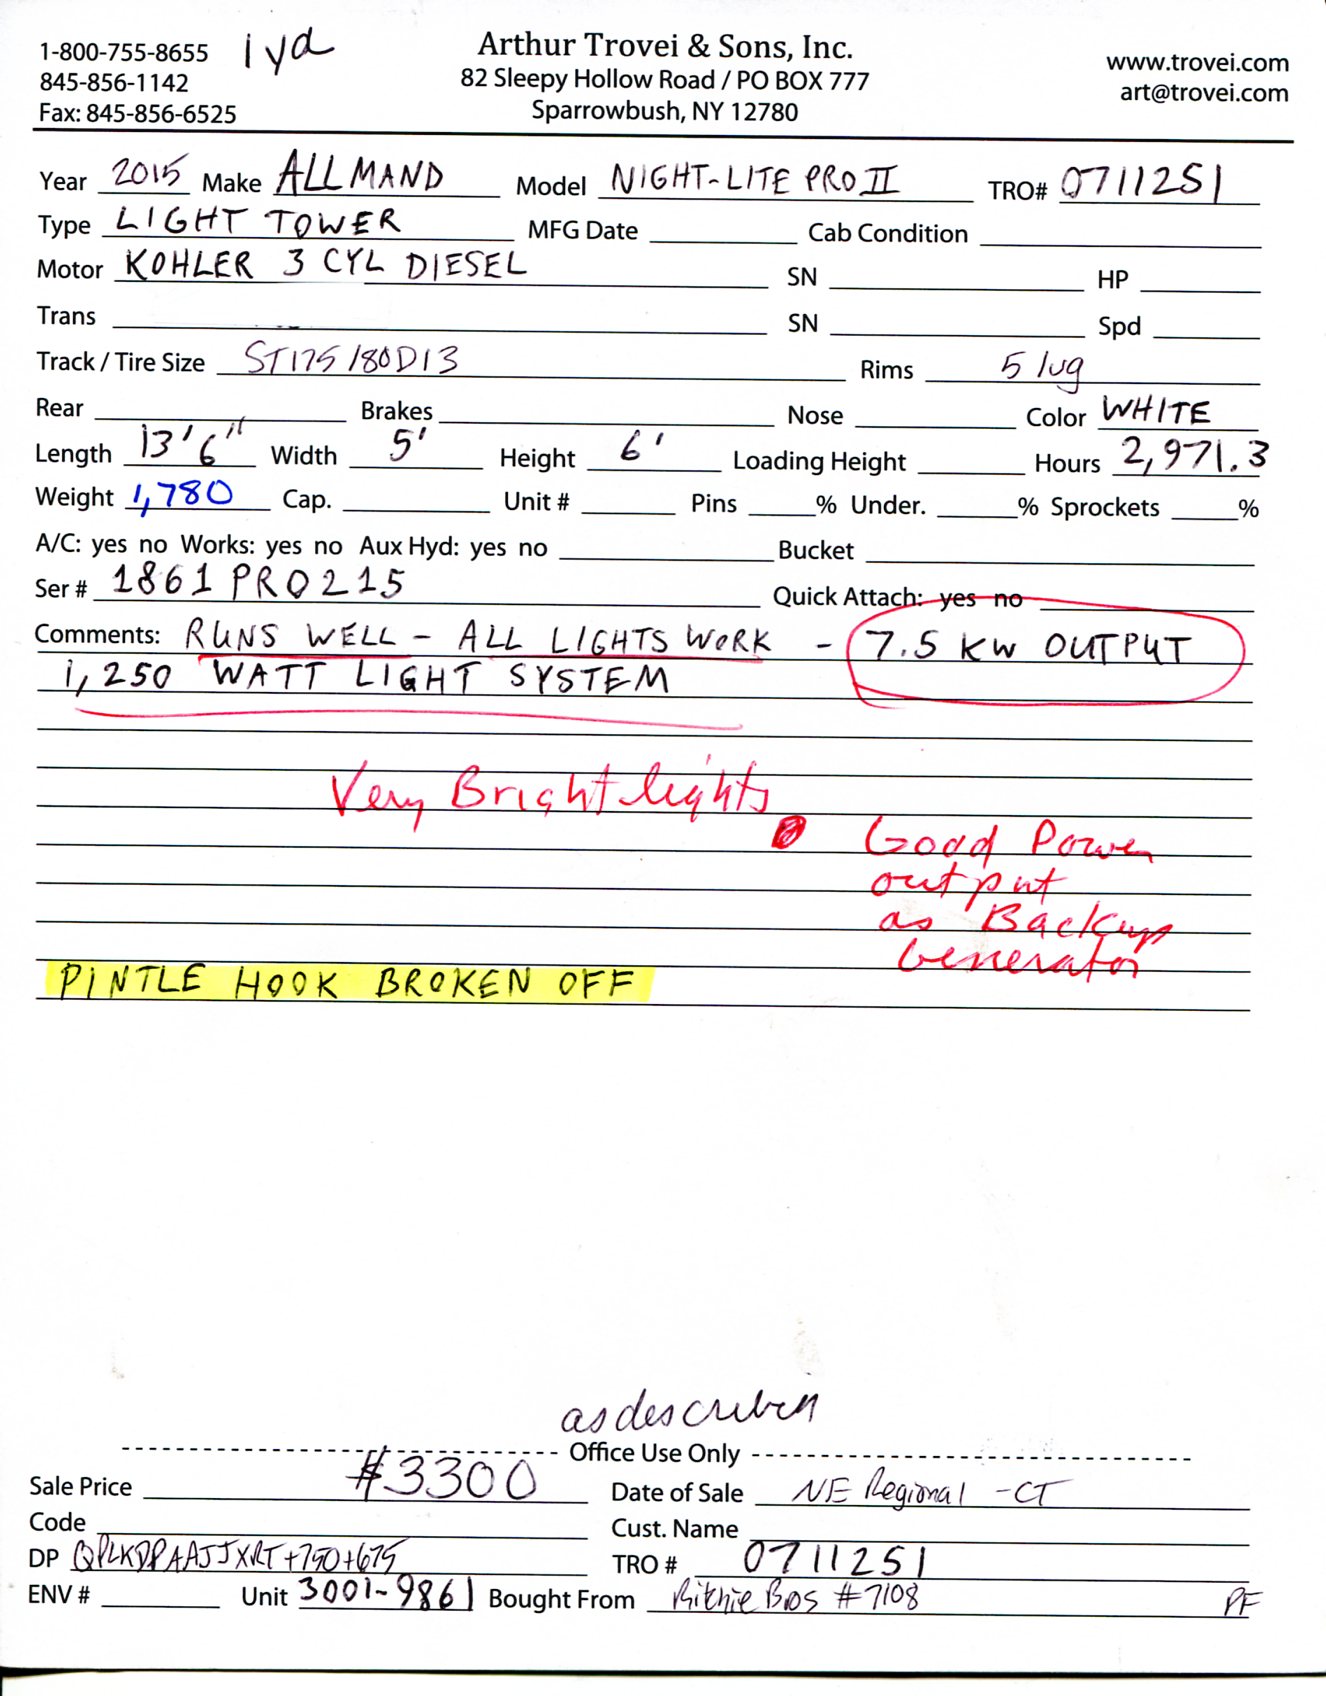 1-800-755-8655 1 yd Arthur Trovei & Sons, Inc. www.trovei.com
845-856-1142 82 Sleepy Hollow Road / PO BOX 777 art@trovei.com
Fax: 845-856-6525 Sparrowbush, NY 12780
Year 2015 Make ALLMAND Model NIGHT-LITE PRO II TRO# 0711251
Type LIGHT TOWER MFG Date Cab Condition
Motor KOHLER 3 CYL DIESEL SN HP
Trans SN Spd
Track / Tire Size ST175/80D13 Rims 5 lug
Rear Brakes Nose Color WHITE
Length 13'6" Width 5' Height 6' Loading Height Hours 2,971.3
Weight 1,780 Cap. Unit # Pins % Under. % Sprockets %
A/C: yes no Works: yes no Aux Hyd: yes no Bucket
Ser # 1861PRO215 Quick Attach: yes no
Comments: RUNS WELL - ALL LIGHTS WORK - 7.5 KW OUTPUT
1,250 WATT LIGHT SYSTEM
Very Bright lights
Good Power
output
as Backup
Generator
PINTLE HOOK BROKEN OFF
as described
Office Use Only
Sale Price #3300 Date of Sale NE Regional - CT
Code Cust. Name
DP +750+675 TRO # 0711251
ENV # Unit 3001-9861 Bought From Ritchie Bros #7108 PF